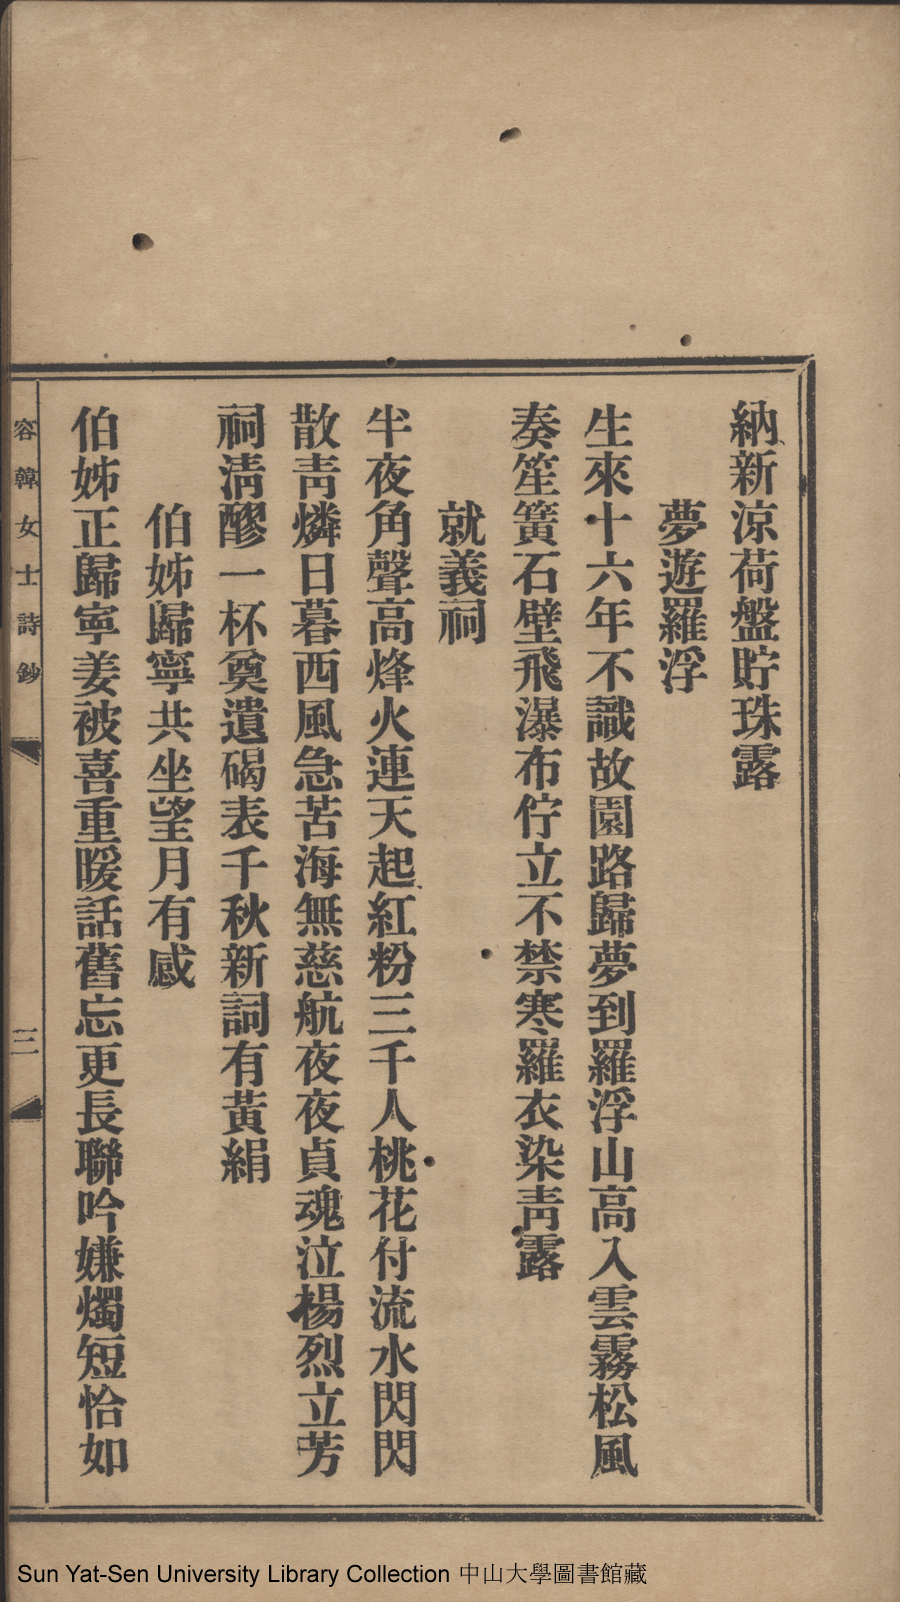 納新涼荷盤貯珠露
夢遊羅浮
生來十六年不識故園路歸夢到羅浮山高入雲霧松風
奏笙簧石壁飛瀑布佇立不禁寒羅衣染靑露
就義祠
半夜角聲高烽火連天起紅粉三千人桃花付流水閃閃
散靑燐日暮西風急苦海無慈航夜夜貞魂泣楊烈立芳
祠淸醪一杯奠遺碣表千秋新詞有黃絹
伯姊歸寧共坐望月有感
伯姊正歸寧姜被喜重暖話舊忘更長聯吟嫌燭短恰如
容韓女士詩鈔
三
Sun Yat-Sen University Library Collection 中山大學圖書館藏